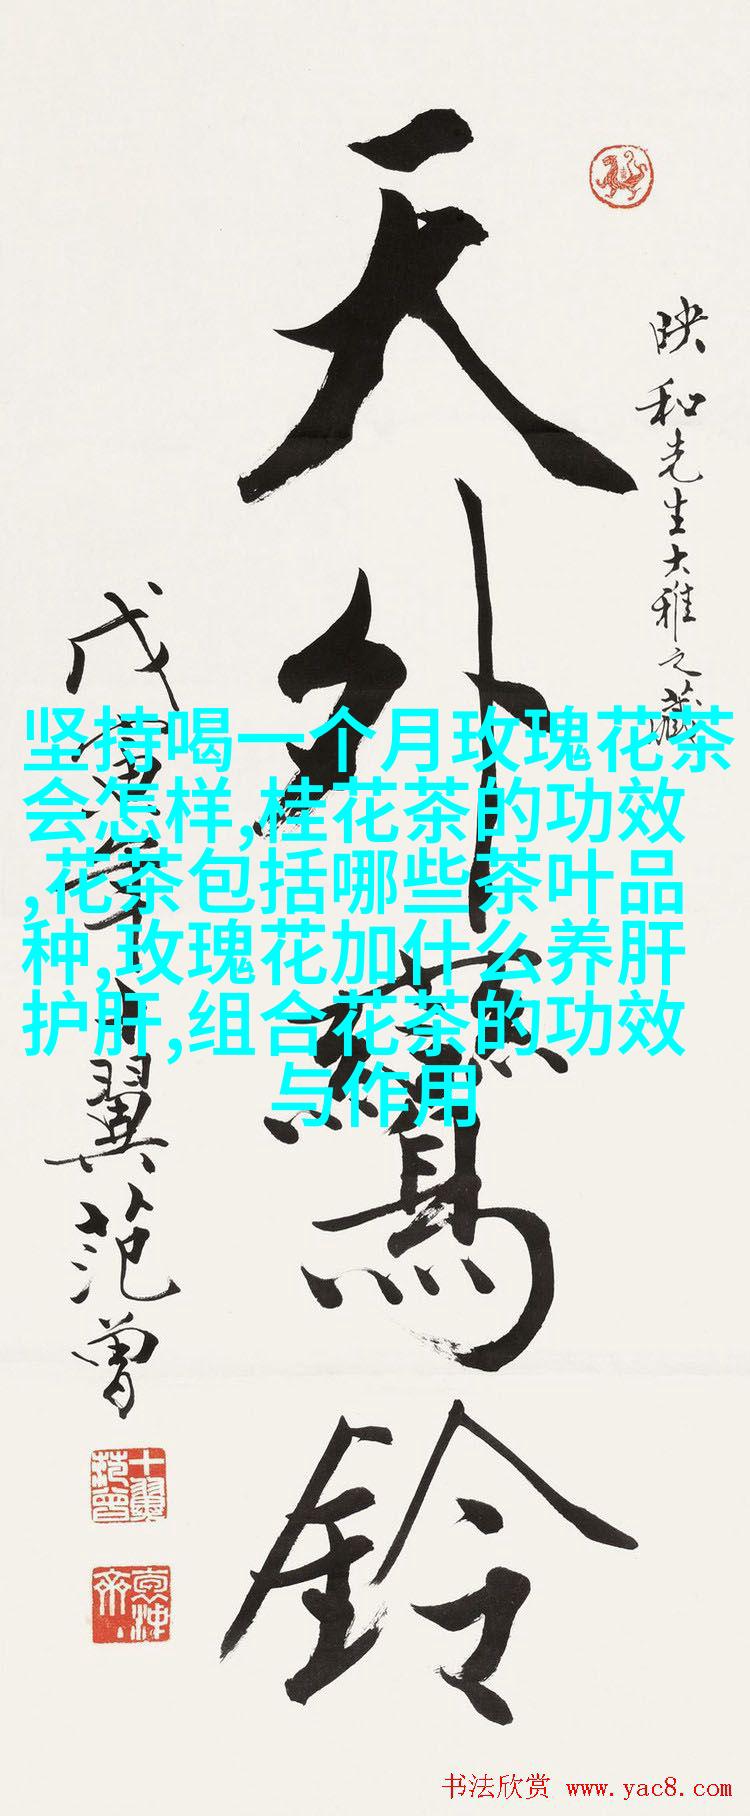 天外驚鈴
映和先生大雅之藏
戊寅年十翼范曾
坚持喝一个月玫瑰花茶
会怎样,桂花茶的功效
,花茶包括哪些茶叶品
种,玫瑰花加什么养肝
护肝,组合花茶的功效
与作用
十翼范曾
书法欣赏 www.yac8.com